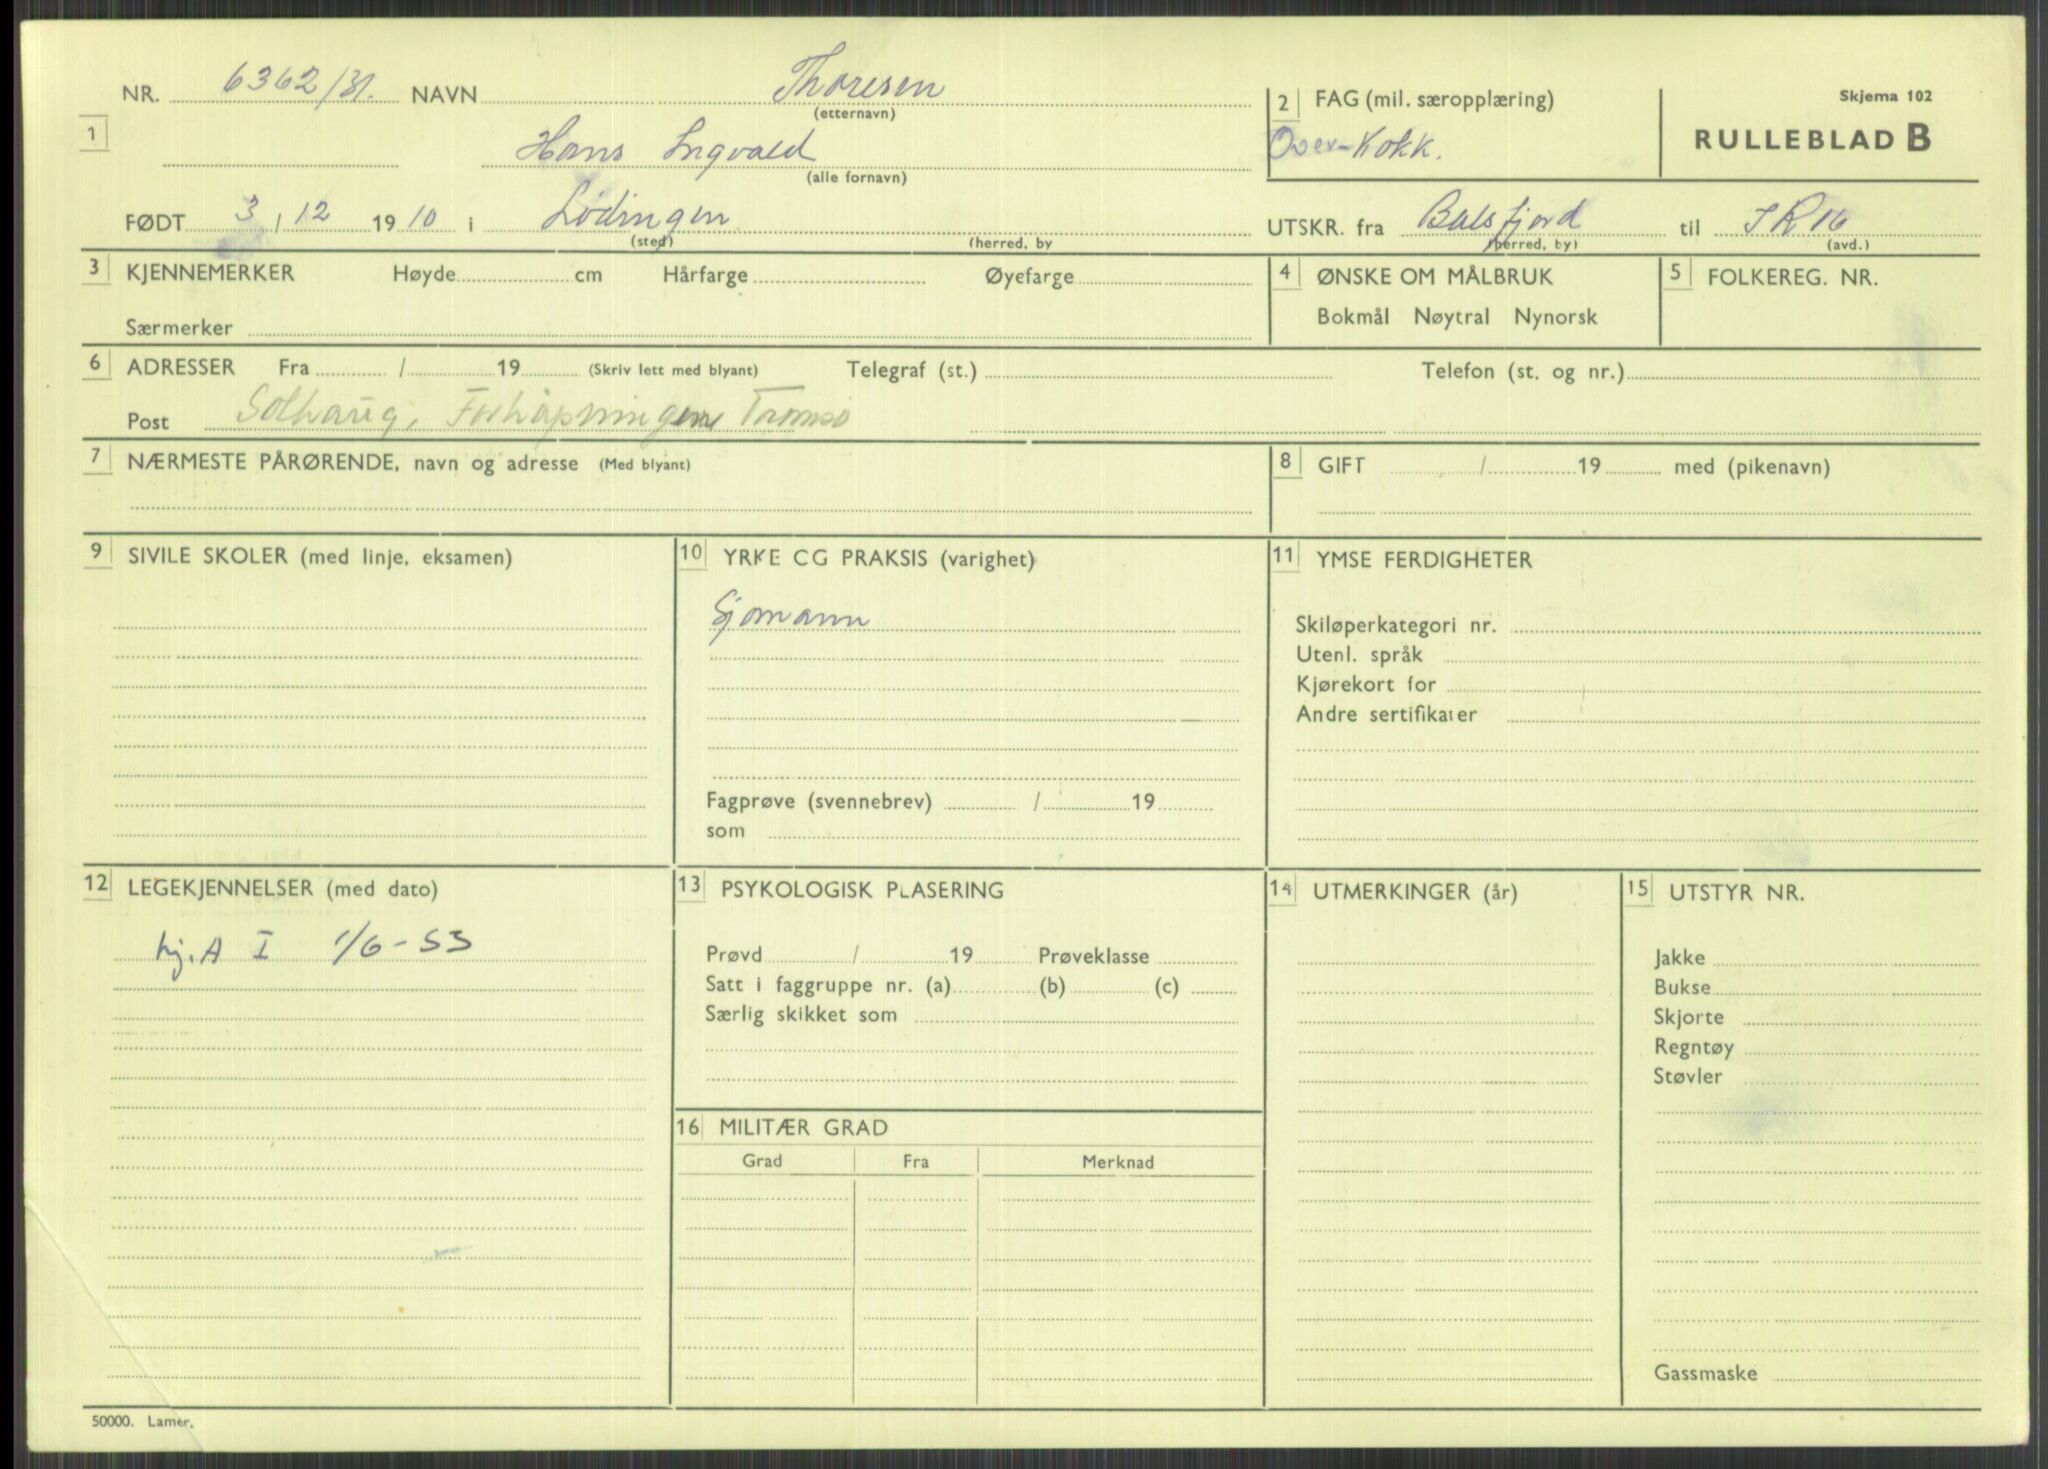 NR. 6362/31. NAVN Thoresen
(etternavn)
1
Hans Ingvald
(alle fornavn)
FØDT 3 / 12 19 10 i Lödingen
(sted) (herred, by
2 FAG (mil. særopplæring)
Over-Kokk.
Skjema 102
RULLEBLAD B
UTSKR. fra Balsfjord til IR 16
(herred, by) (avd.)
3 KJENNEMERKER Høyde cm Hårfarge Øyefarge
Særmerker
4 ØNSKE OM MÅLBRUK
Bokmål Nøytral Nynorsk
5 FOLKEREG. NR.
6 ADRESSER Fra / 19 (Skriv lett med blyant) Telegraf (st.) Telefon (st. og nr.)
Post Solhaug, Forhåpningen Tromsø
7 NÆRMESTE PÅRØRENDE, navn og adresse (Med blyant)
8 GIFT / 19 med (pikenavn)
9 SIVILE SKOLER (med linje, eksamen)
10 YRKE CG PRAKSIS (varighet)
Sjømann
Fagprøve (svennebrev) / 19
som
11 YMSE FERDIGHETER
Skiløperkategori nr.
Utenl. språk
Kjørekort for
Andre sertifikater
12 LEGEKJENNELSER (med dato)
kj. A I 1/6-53
13 PSYKOLOGISK PLASERING
Prøvd / 19 Prøveklasse
Satt i faggruppe nr. (a) (b) (c)
Særlig skikket som
14 UTMERKINGER (år)
15 UTSTYR NR.
Jakke
Bukse
Skjorte
Regntøy
Støvler
Gassmaske
16 MILITÆR GRAD
Grad Fra Merknad
50000. Lamer.